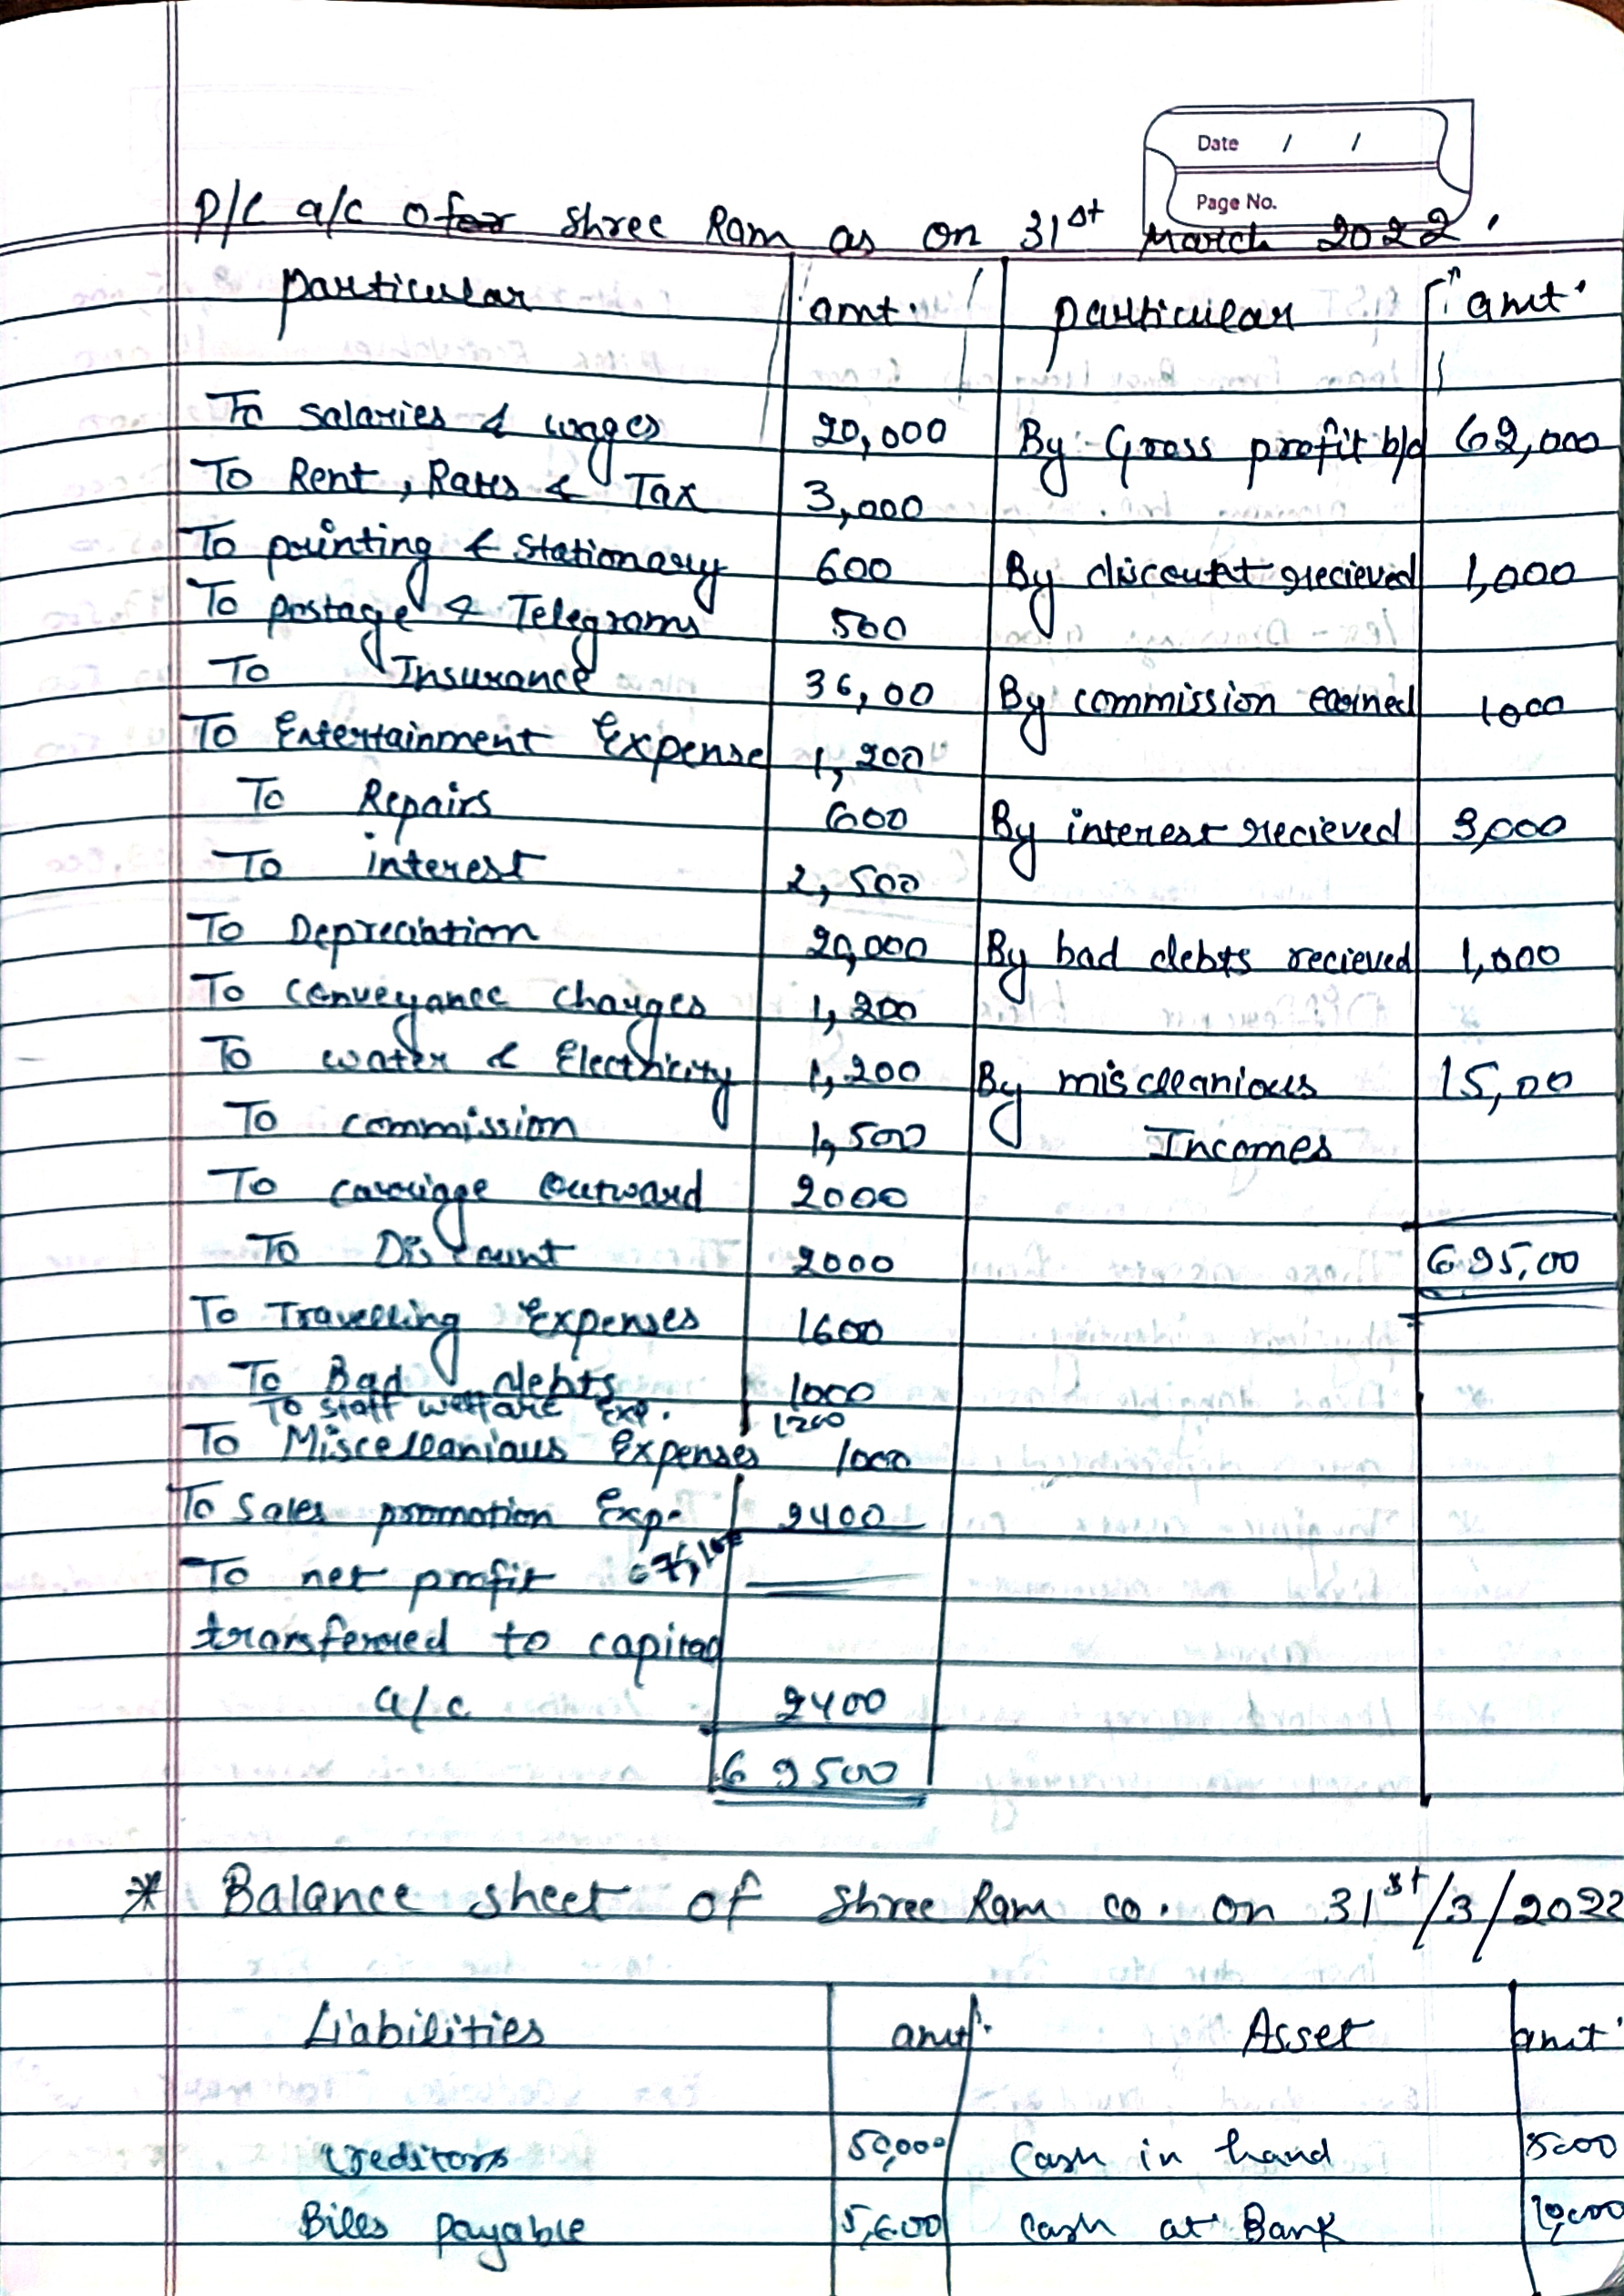 Date / /
Page No.
P/L a/c of Shree Ram as on 31st March 2022.
particular amt. particular amt.
To salaries & wages 20,000 By Gross profit b/d 62,000
To Rent, Rates & Tax 3,000
To printing & Stationary 600 By discount recieved 1,000
To postage & Telegrams 500
To Insurance 36,00 By commission earned 1000
To Entertainment Expense 1,200
To Repairs 600 By interest recieved 3,000
To interest 2,500
To Depreciation 20,000 By bad debts recieved 1,000
To conveyance charges 1,200
To water & Electricity 1,200 By miscleanious 15,00
To commission 1,500 Incomes
To carriage outward 2000
To Discount 2000 695,00
To Travelling Expenses 1600
To Bad debts 1000
To staff welfare Exp. 1200
To Miscelleanious Expenses 1000
To Sales promotion Exp. 2400
To net profit 67,100
transferred to capital
a/c 2400
69500
* Balance sheet of Shree Ram co. on 31st/3/2022
Liabilities amt. Asset amt.
Creditors 50,000 Cash in hand 5000
Bills payable 5,600 Cash at Bank 10,000